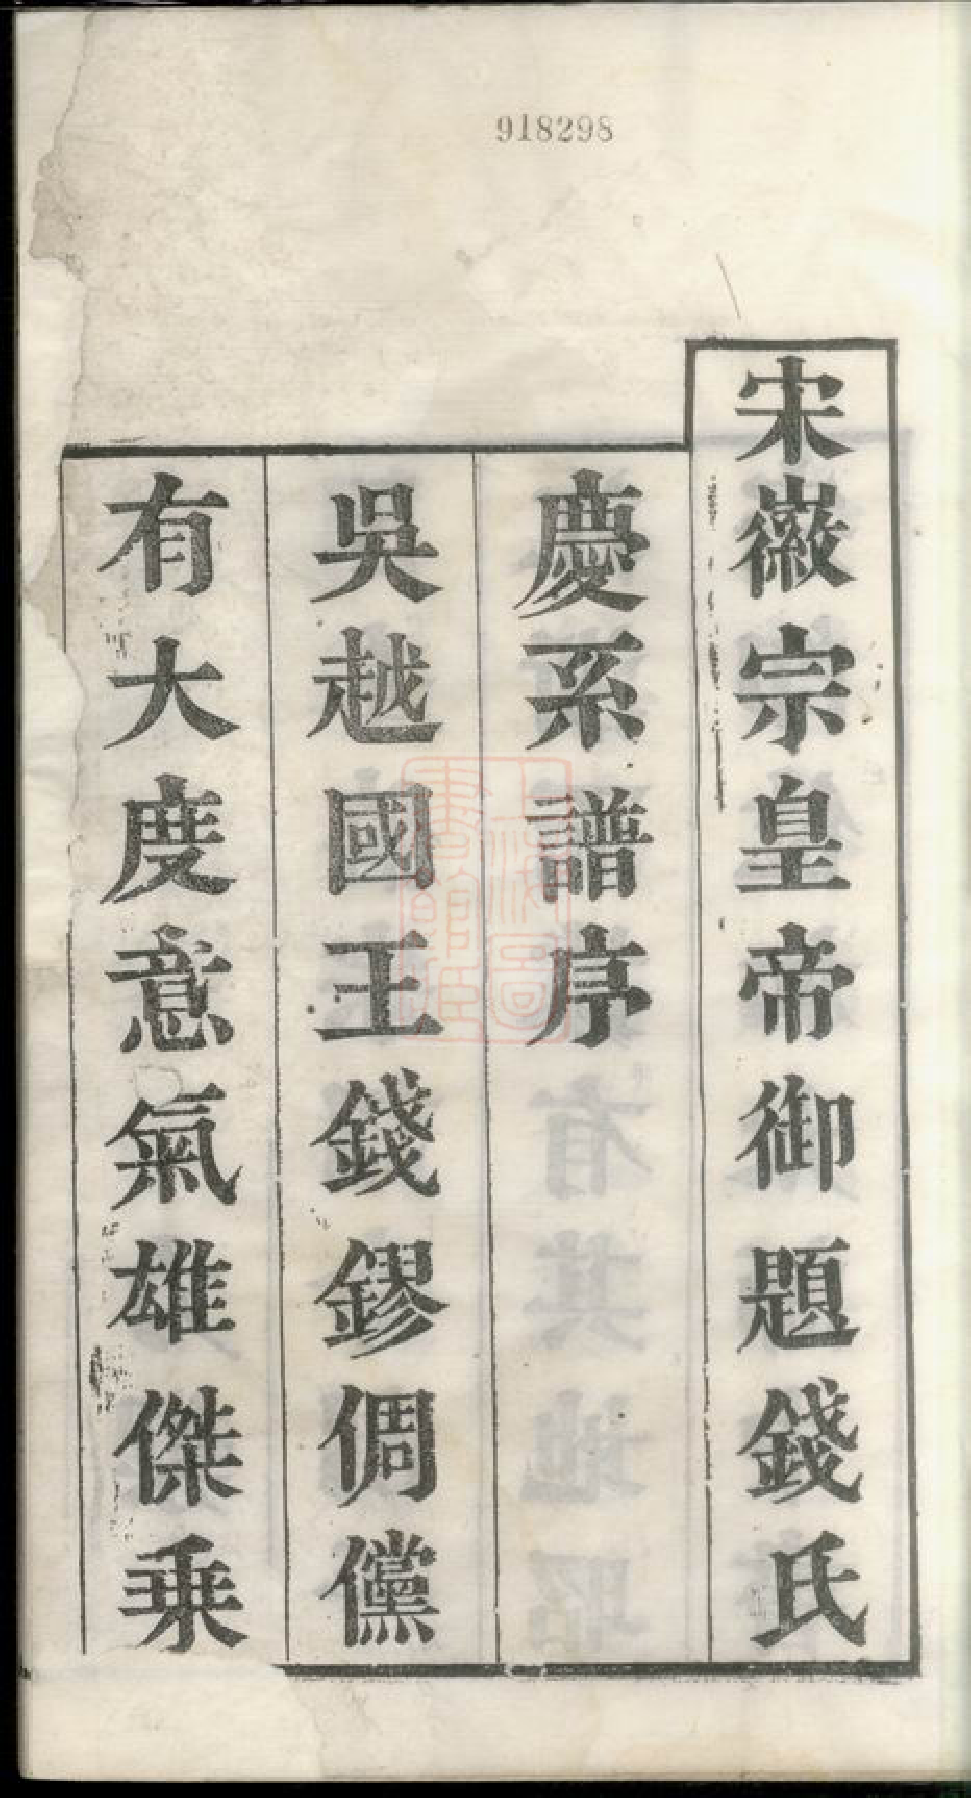 918298
宋徽宗皇帝御題錢氏
慶系譜序
吳越國王錢鏐倜儻
有大度意氣雄傑乗